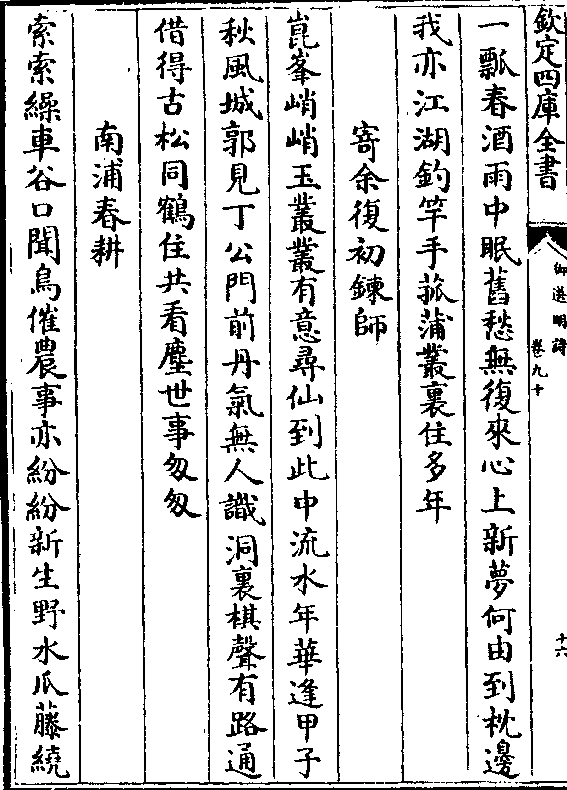 欽定四庫全書
御選明詩
卷九十
十六
一瓢春酒雨中眠舊愁無復來心上新夢何由到枕邊
我亦江湖釣竿手菰蒲叢裏住多年
寄余復初鍊師
崑峯峭峭玉叢叢有意尋仙到此中流水年華逢甲子
秋風城郭見丁公門前丹氣無人識洞裏棋聲有路通
借得古松同鶴住共看塵世事匆匆
南浦春耕
索索繰車谷口聞鳥催農事亦紛紛新生野水瓜藤繞